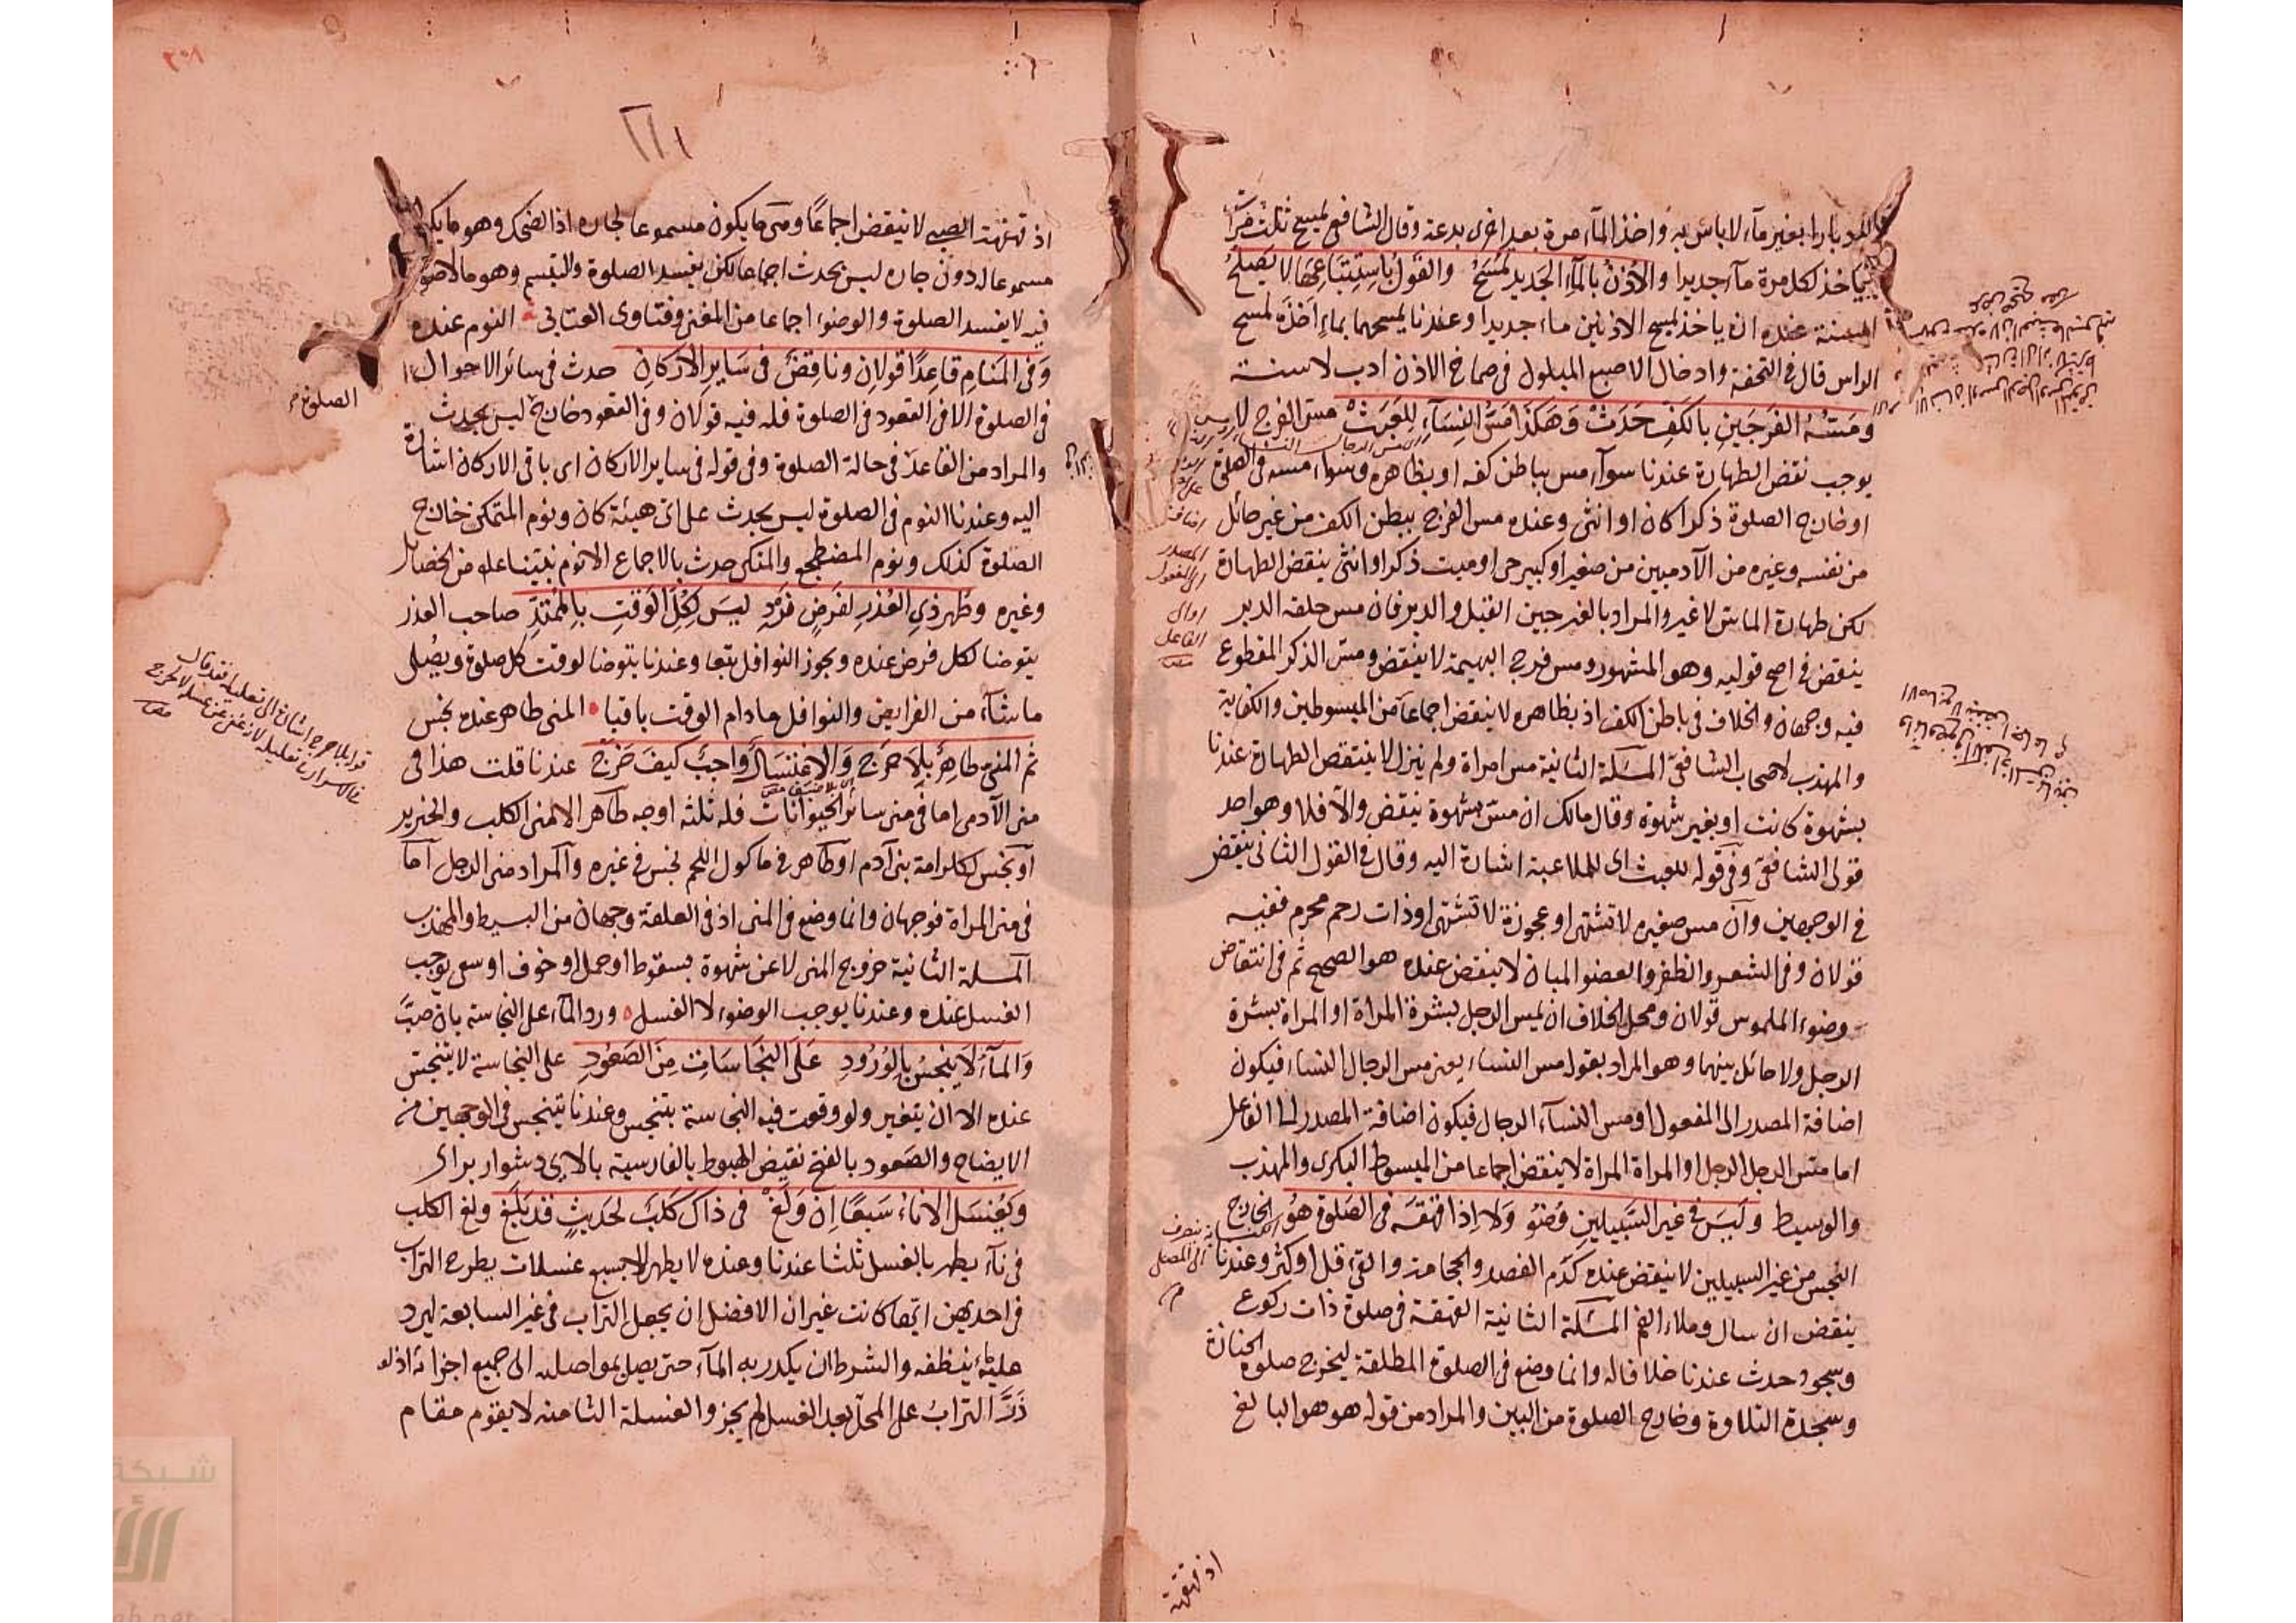 بغير ماء لا باس به واخذ الماء مرة بعد اخرى بدعة وقال الشافعي يمسح ثلث مرات
ياخذ لكل مرة ماء جديدا والأذن بالماء الجديد تمسح والقول باستتباعها لا يصلح
السنة عنده ان ياخذ لمسح الاذنين ماء جديدا وعندنا يمسحهما بماء اخذه لمسح
الراس قال في التحفة وادخال الاصبع المبلول في صماخ الاذن ادب لا سنة
ومسه الفرجين بالكف حدث وهكذا مس النساء للعبث مس الفرج ليس
يوجب نقض الطهارة عندنا سواء مس بباطن كفه او بظاهره وسواء مسه في الصلوة
او خارج الصلوة ذكرا كان او انثى وعنده مس الفرج ببطن الكف من غير حائل
من نفسه وغيره من الآدميين من صغير او كبير حي او ميت ذكر او انثى ينقض الطهارة
لكن طهارة الماس لا غير والمراد بالفرجين القبل والدبر فان مس حلقة الدبر
ينقض في اصح قوليه وهو المشهور ومس فرج البهيمة لا ينقض ومس الذكر المقطوع
فيه وجهان والخلاف في باطن الكف اذ بظاهره لا ينقض اجماعا من المبسوطين والكفاية
والمهذب لاصحاب الشافعي المسئلة الثانية مس امراة ولم ينزل لا ينتقض الطهارة عندنا
بشهوة كانت او بغير شهوة وقال مالك ان مس بشهوة ينقض والا فلا وهو احد
قولي الشافعي وفي قوله للعبث اى للملاعبة اشارة اليه وقال في القول الثاني ينقض
في الوجهين وان مس صغيره لا تشتهى او عجوزة لا تشتهى او ذات رحم محرم ففيه
قولان وفي الشعر والظفر والعضو المبان لا ينقض عنده هو الصحيح ثم في انتقاض
وضوء الملموس قولان ومحل الخلاف ان يمس الرجل بشرة المراة او المراة بشرة
الرجل ولا حائل بينهما وهو المراد بقوله مس النساء يعني مس الرجال النساء فيكون
اضافة المصدر الى المفعول او مس النساء الرجال فيكون اضافة المصدر الى الفاعل
اما مس الرجل الرجل او المراة المراة لا ينقض اجماعا من المبسوط البكرى والمهذب
والوسيط وليس في غير السبيلين وضوء ولا اذا قهقه في الصلوة هو الخارج
النجس من غير السبيلين لا ينقض عنده كدم الفصد والحجامة والقئ قل او كثر وعندنا
ينقض ان سال وملاء الفم المسئلة الثانية القهقة في صلوة ذات ركوع
وسجود حدث عندنا خلافا له وانما وضع في الصلوة المطلقة ليخرج صلوة الجنازة
وسجدة التلاوة وخارج الصلوة من البين والمراد من قوله هو هو البالغ
اضافة
المصدر
الى المفعول
او الى
الفاعل
اذ قهقهة
اذ قهقهة الصبي لا ينقض اجماعا ومتى ما يكون مسموعا لجاره اذ الضحك وهو ما يكون
مسموعا له دون جاره ليس بحدث اجماعا لكن يفسد الصلوة والتبسم وهو ما لا صوت
فيه لا يفسد الصلوة والوضوء اجماعا من المغني وفتاوى العتابي النوم عنده
وفي المنام قاعدا قولان وناقض في ساير الاركان حدث في سائر الاحوال
في الصلوة الا في القعود في الصلوة فله فيه قولان وفي القعود خارج ليس بحدث
الصلوة
والمراد من القاعد في حالة الصلوة وفي قوله في ساير الاركان اى باقي الاركان اشارة
اليه وعندنا النوم في الصلوة ليس بحدث على اى هيئة كان ونوم المتمكن خارج
الصلوة كذلك ونوم المضطجع والمتكى حدث بالاجماع الا نوم نبينا عليه من الخصائل
وغيره وطهر ذي العذر لفرض فرد ليس لكل الوقت بالممتد صاحب العذر
يتوضا لكل فرض عنده ويجوز النوافل تبعا وعندنا يتوضا لوقت كل صلوة ويصلى
ما شاء من الفرايض والنوافل ما دام الوقت باقيا المنى طاهر عنده نجس
ثم المني طاهر بلا حرج والاغتسال واجب كيف خرج عندنا قلت هذا في
منى الآدمى اما في منى سائر الحيوانات فله ثلثة اوجه طاهر الا منى الكلب والخنزير
او نجس لكرامة بنى آدم او طاهر في ماكول اللحم نجس في غيره والمراد منى الرجل اما
في منى المراة فوجهان وانما وضع في المنى اذ في العلقة وجهان من البسيط والمهذب
المسئلة الثانية خروج المنى لا عن شهوة بسقوط او حمل او خوف او سعى يوجب
الغسل عنده وعندنا يوجب الوضوء لا الغسل ورد الماء على النجاسة بان صب
والماء لا ينجس بالورود على النجاسات من الصعود على النجاسة لا يتنجس
عنده الا ان يتغير ولو وقعت فيه النجاسة يتنجس وعندنا يتنجس في الوجهين من
الايضاح والصعود بالفتح نقيض الهبوط بالفارسية بالاى دشوار براى
ويغسل الاناء سبعا ان ولغ في ذاك كلب لحديث قد بلغ ولغ الكلب
في اناء يطهر بالغسل ثلثا عندنا وعنده لا يطهر الا بسبع غسلات يطرح التراب
في احديهن ايتها كانت غير ان الافضل ان يجعل التراب في غير السابعة ليرد
عليه ما ينظفه والشرط ان يكدر به الماء حتى يصل بمواصلة الى جميع اجزائه اذ لو
ذر التراب على المحل بعد الغسل لم يجز والغسلة الثامنة لا يقوم مقام
شبكة